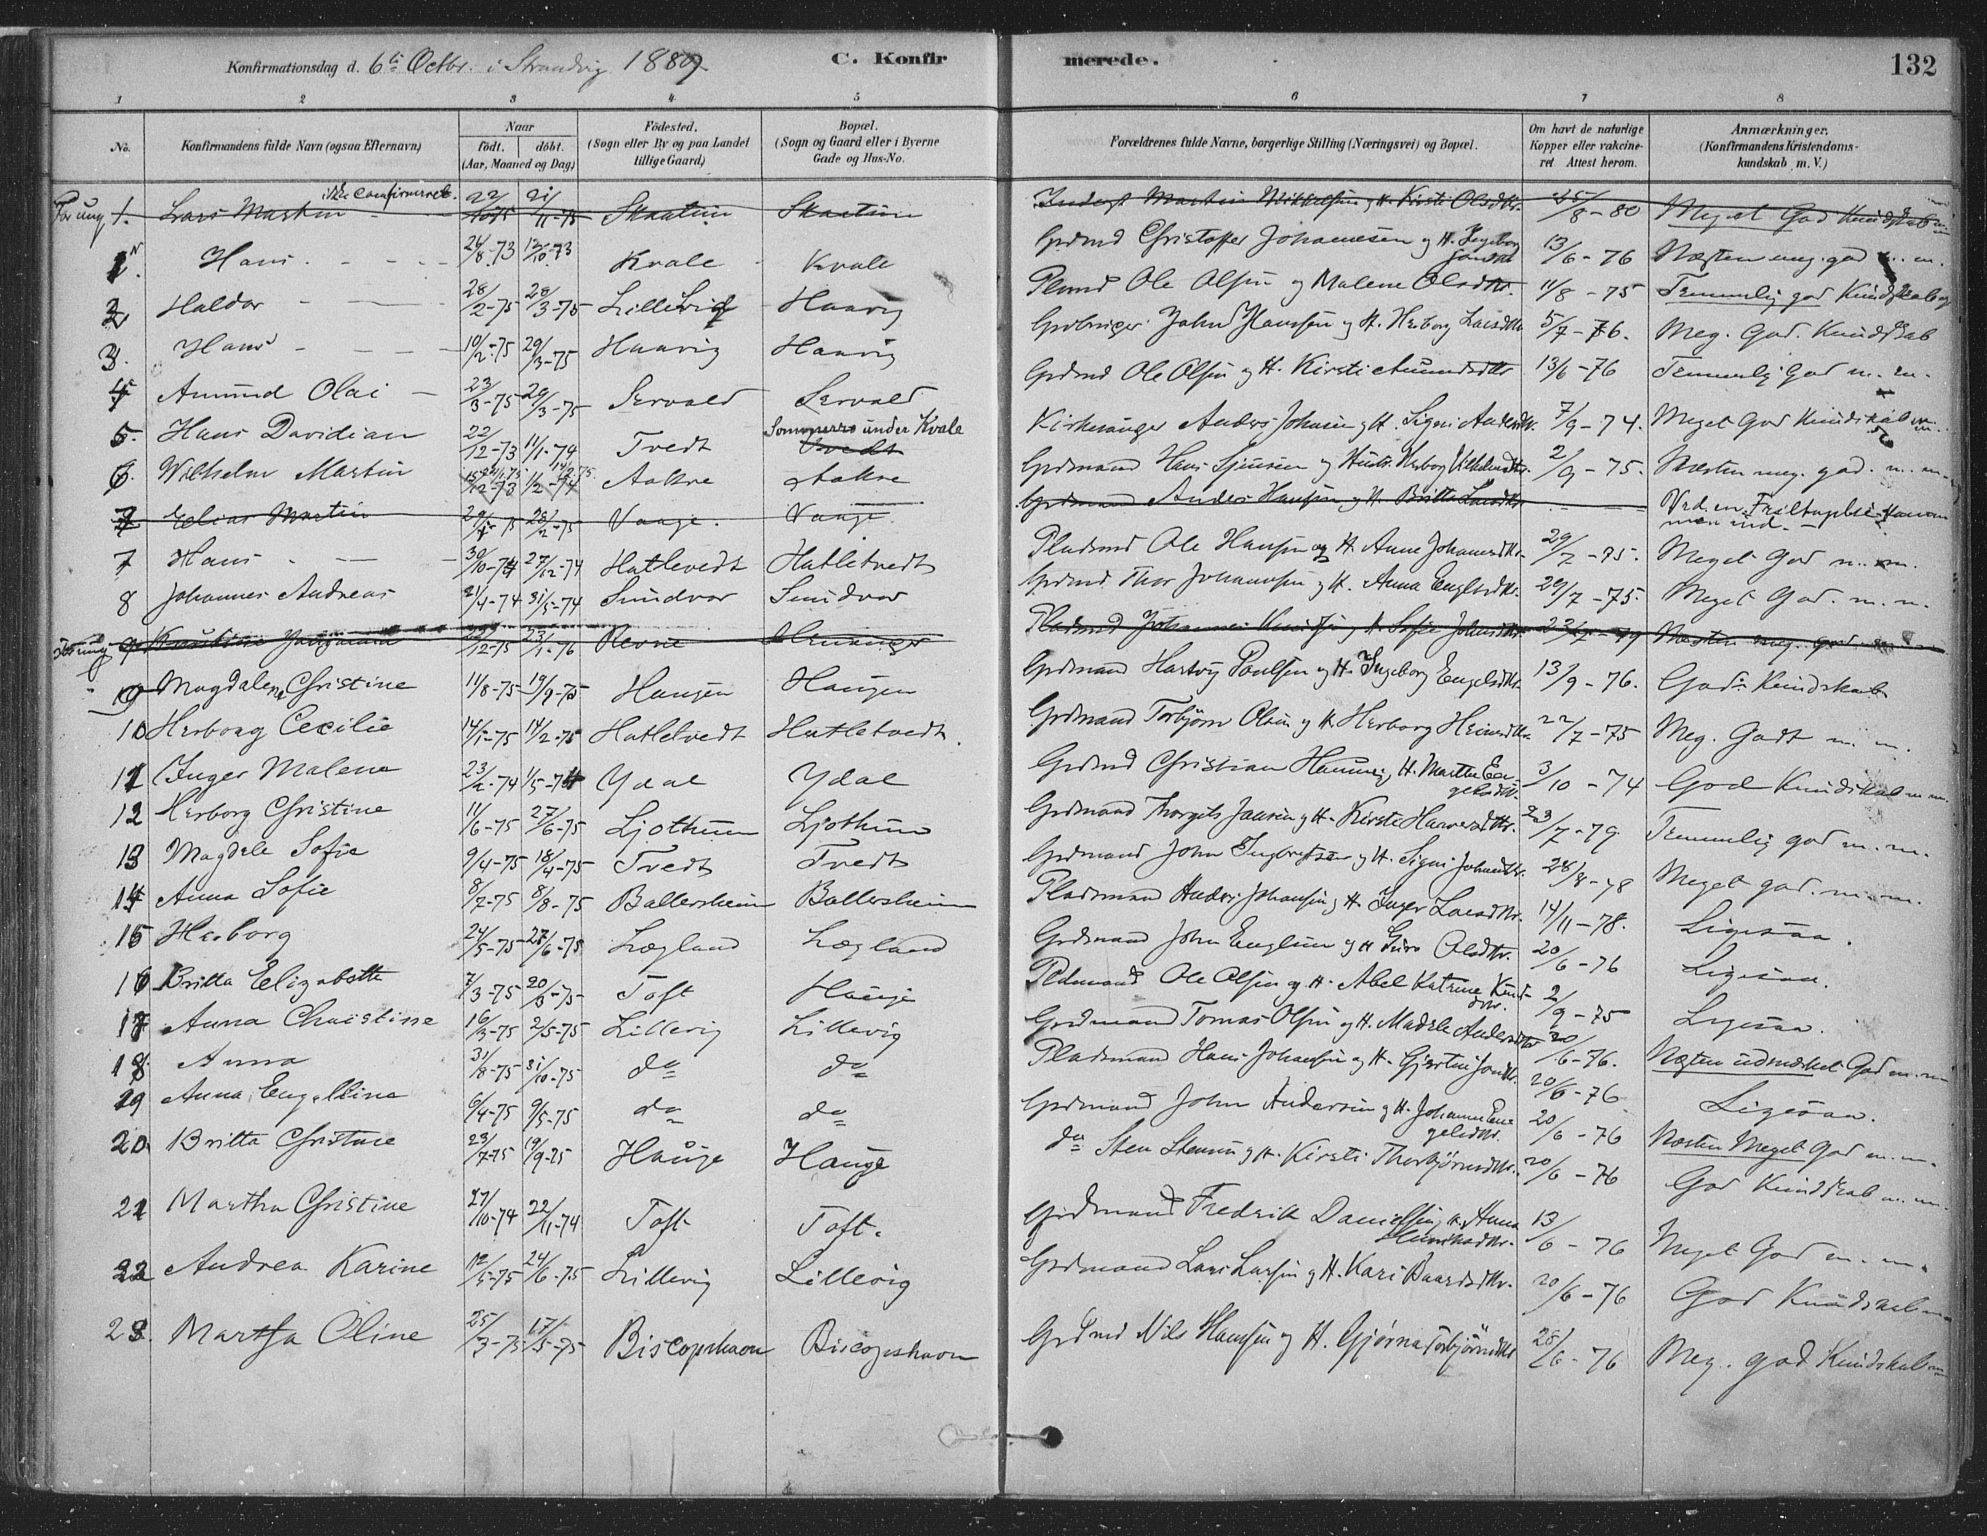 Konfirmationsdag d. 6te Octbr. i Strandvig 1889. C. Konfirmerede. 132
1 2 3 4 5 6 7 8
No. Konfirmandens fulde Navn (ogsaa Efternavn) Naar født. døbt. (Aar, Maaned og Dag) Fødested. (Sogn eller By og paa Landet tillige Gaard) Bopæl. (Sogn og Gaard eller i Byerne Gade og Hus-No. Forældrenes fulde Navne, borgerlige Stilling (Næringsvei) og Bopæl. Om havt de naturlige Kopper eller vakcineret. Attest herom. Anmærkninger. (Konfirmandens Kristendomskundskab m. V.)
For ung 1. Lars Martin ikke confirmeret. Skaatun Skaatun Martin Mikkelsen og H. Kirsti Olsdtr. /8-80 Meget God Kundskab
1 Hans 24/8-73 12/10-73 Kvale Kvale Grdmd Christoffer Johannesen og H. Ingeborg 13/6-76 Næsten meg. god m. m.
2 Haldor 28/2-75 28/3-75 Lillevig Haavig Plmd Ole Olsen og Malene Olsdtr. 11/8-75 Temmelig god Kundskab
3. Hans 10/2-75 29/3-75 Haavig Haavig John Hansen og H. Herborg Larsdtr 5/7-76. Meg. God. Kundskab
4 Amund Olai 23/3-75 29/3-75 Servold Servold Grdmd Ole Olsen og H. Kirsti Amundsdtr 13/6-76 Temmelig God m. m.
5. Hans Davidian 22/12-73 11/1-74 Tvedt Sommerro under Kvale Tvedt Kirkesanger Anders Johnsen og H. Sigri Andersdtr. 7/9-74. Meget God Kundskab m.
6. Wilhelm Martin Aakre Aakre Grdmand Hans og Hustr. Herborg Vilhelmsdtr. 2/9-75. Næsten meg. god. m. m.
7 Elias Martin 28/2-75 Vaage. Vaage. Grdmand Anders Hansen og H. Britta Larsdtr
7 Hans 30/10-74 27/12-74 Hatlevedt Hatletvedt Pladsmd Ole Hansen og H. Anne Johannesdtr. 29/7-75. Meget God m. m.
8 Johannes Andreas 21/4-74 31/5-74 Sundvor Sundvor Grdmd Thor Johannesen og H. Anna Engelsdtr. 29/7-75. Meget God. m. m.
For ung 9. 22/12-75 23/1-76 Revne Pladsmd Johannes Knudsen og H. Sofie Johnsdtr 22/7-79 Næsten meg. god m. m.
9 Magdalena Christine 11/8-75 19/9-75 Haugen Haugen Grdmand Hartvig Paulsen og H. Ingeborg Engelsdtr. 13/9-76. God Kundskab
10 Herborg Cecilie 14/1-75 14/2-75 Hatletvedt Hatletvedt. Grdmand Torbjørn Olsen og H. Herborg Heinesdtr. 22/7-75 Meg. Godt m. m.
11 Inger Malena 23/2-74 1/5-74 Ydal Ydal Grdmd Christian Hansen, H. Martha Engelsdtr. 3/10-74 God Kundskab m. m.
12 Herborg Christine 11/6-75 27/6-75 Ljothun Ljothun Grdmand Thorgils Jansen og H. Kirsti Haavardsdtr. 23/7-79. Temmelig god m. m.
13 Magdele Sofie 9/4-75 18/4-75 Tvedt Tvedt Grdmand John Ingbrigtsen og H. Signi Johnsdtr. 28/8-78 Meget god. m. m.
14 Anna Sofie 8/7-75 8/8-75 Ballersheim Ballersheim Pladsmand Anders Johansen og H. Inger Larsdtr. 14/11-78. Ligesaa.
15 Herborg 24/5-75 27/6-75 Lægland Lægland Grdmand John Engelsen og H Guro Olsdtr. 20/6-76 Ligesaa.
16 Britta Elizabeth 7/3-75 20/3-75 Toft Hauge Pldmand Ole Olsen og H. Abel Katrine Knudsdtr. 2/9-75 Ligesaa.
17 Anna Christine 16/3-75 2/5-75 Lillevig Lillevig Grdmand Tomas Olsen og H. Madele Andersdtr 20/6-76. Næsten udmærket God m. m
18. Anna 31/8-75 31/10-75 do do Pladsmand Hans Johansen og H. Gjertrin Jonsdtr. 20/6-76 Ligesaa.
19 Anna Engelline 6/4-75 9/5-75 do do Grdmand John Andersen og H. Johanne Engelsdtr. 20/6-76 Næsten Meget God m. m.
20. Britta Christine 23/7-75 19/9-75 Hauge Hauge do Sten Stensen og H. Kirsti Thorbjørnsdtr. 20/6-76 God Kundskab m. m.
21 Martha Christine 27/10-74 22/11-74 Toft Toft. Grdmand Fredrik Danielsen, H. Anna 13/6-76 Meget God m. m.
22 Andrea Karine 12/5-75 24/6-75 Lillevig Lillevig Grdmand Lars Larsen og H. Kari Baardsdtr. 20/6-76 God Kundskab
23. Martha Oline 25/3-75 17/5-75 Biscopshavn Biscopshavn Grdmd Nils Hansen og H. Gjørna Torbjørnsdtr 28/6-76 Meg. god Kundskab